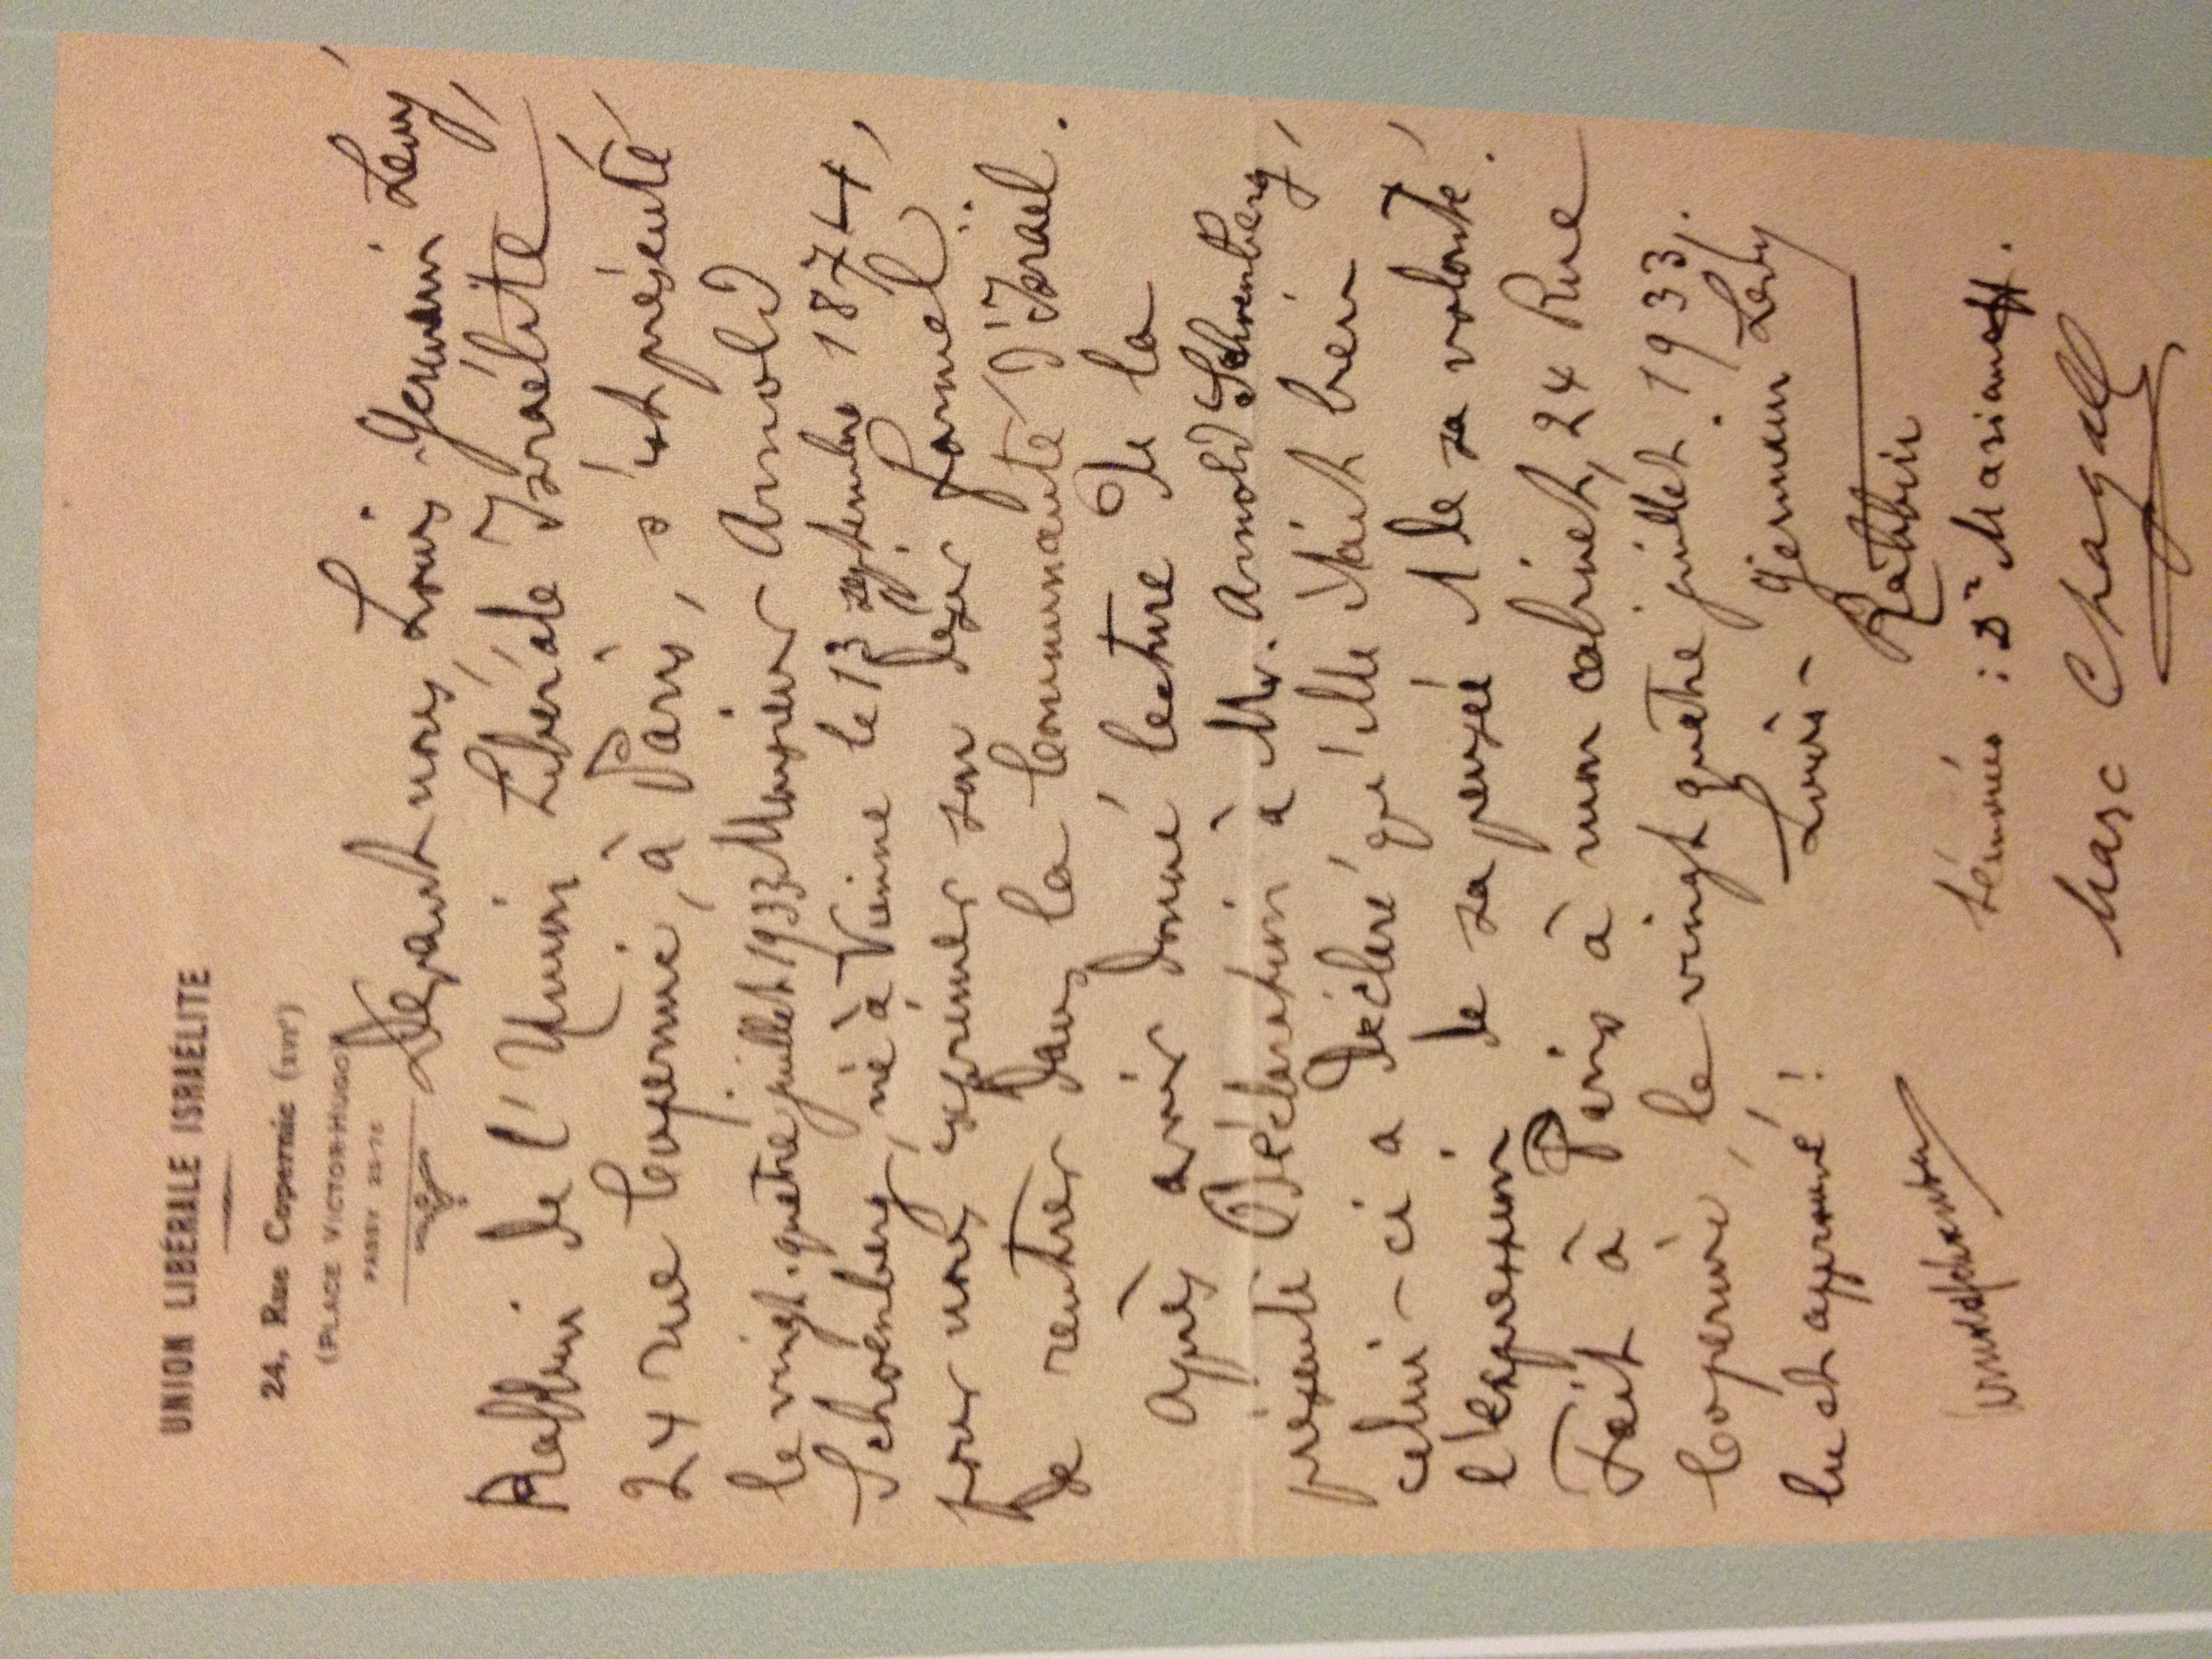 UNION LIBÉRALE ISRAÉLITE
24, Rue Copernic (XVIe)
(PLACE VICTOR-HUGO)
PASSY 25-76
Devant nous, Louis Germain Lévy,
Rabbin de l'Union Libérale Israélite
24 rue Copernic, à Paris, s'est présenté
le vingt-quatre juillet 1933 Monsieur Arnold
Schoenberg, né à Vienne le 13 septembre 1874,
pour nous exprimer son désir formel
de rentrer dans la Communauté d'Israël.
Après avoir donné lecture de la
présente Déclaration à Mr. Arnold Schoenberg,
celui-ci a déclaré qu'elle était bien
l'expression de sa pensée et de sa volonté.
Fait à Paris à mon cabinet, 24 Rue
Copernic, le vingt quatre juillet 1933.
lu et approuvé! Louis-Germain Lévy
Rabbin
Arnold Schoenberg
témoins: Dr Marianoff.
Marc Chagall